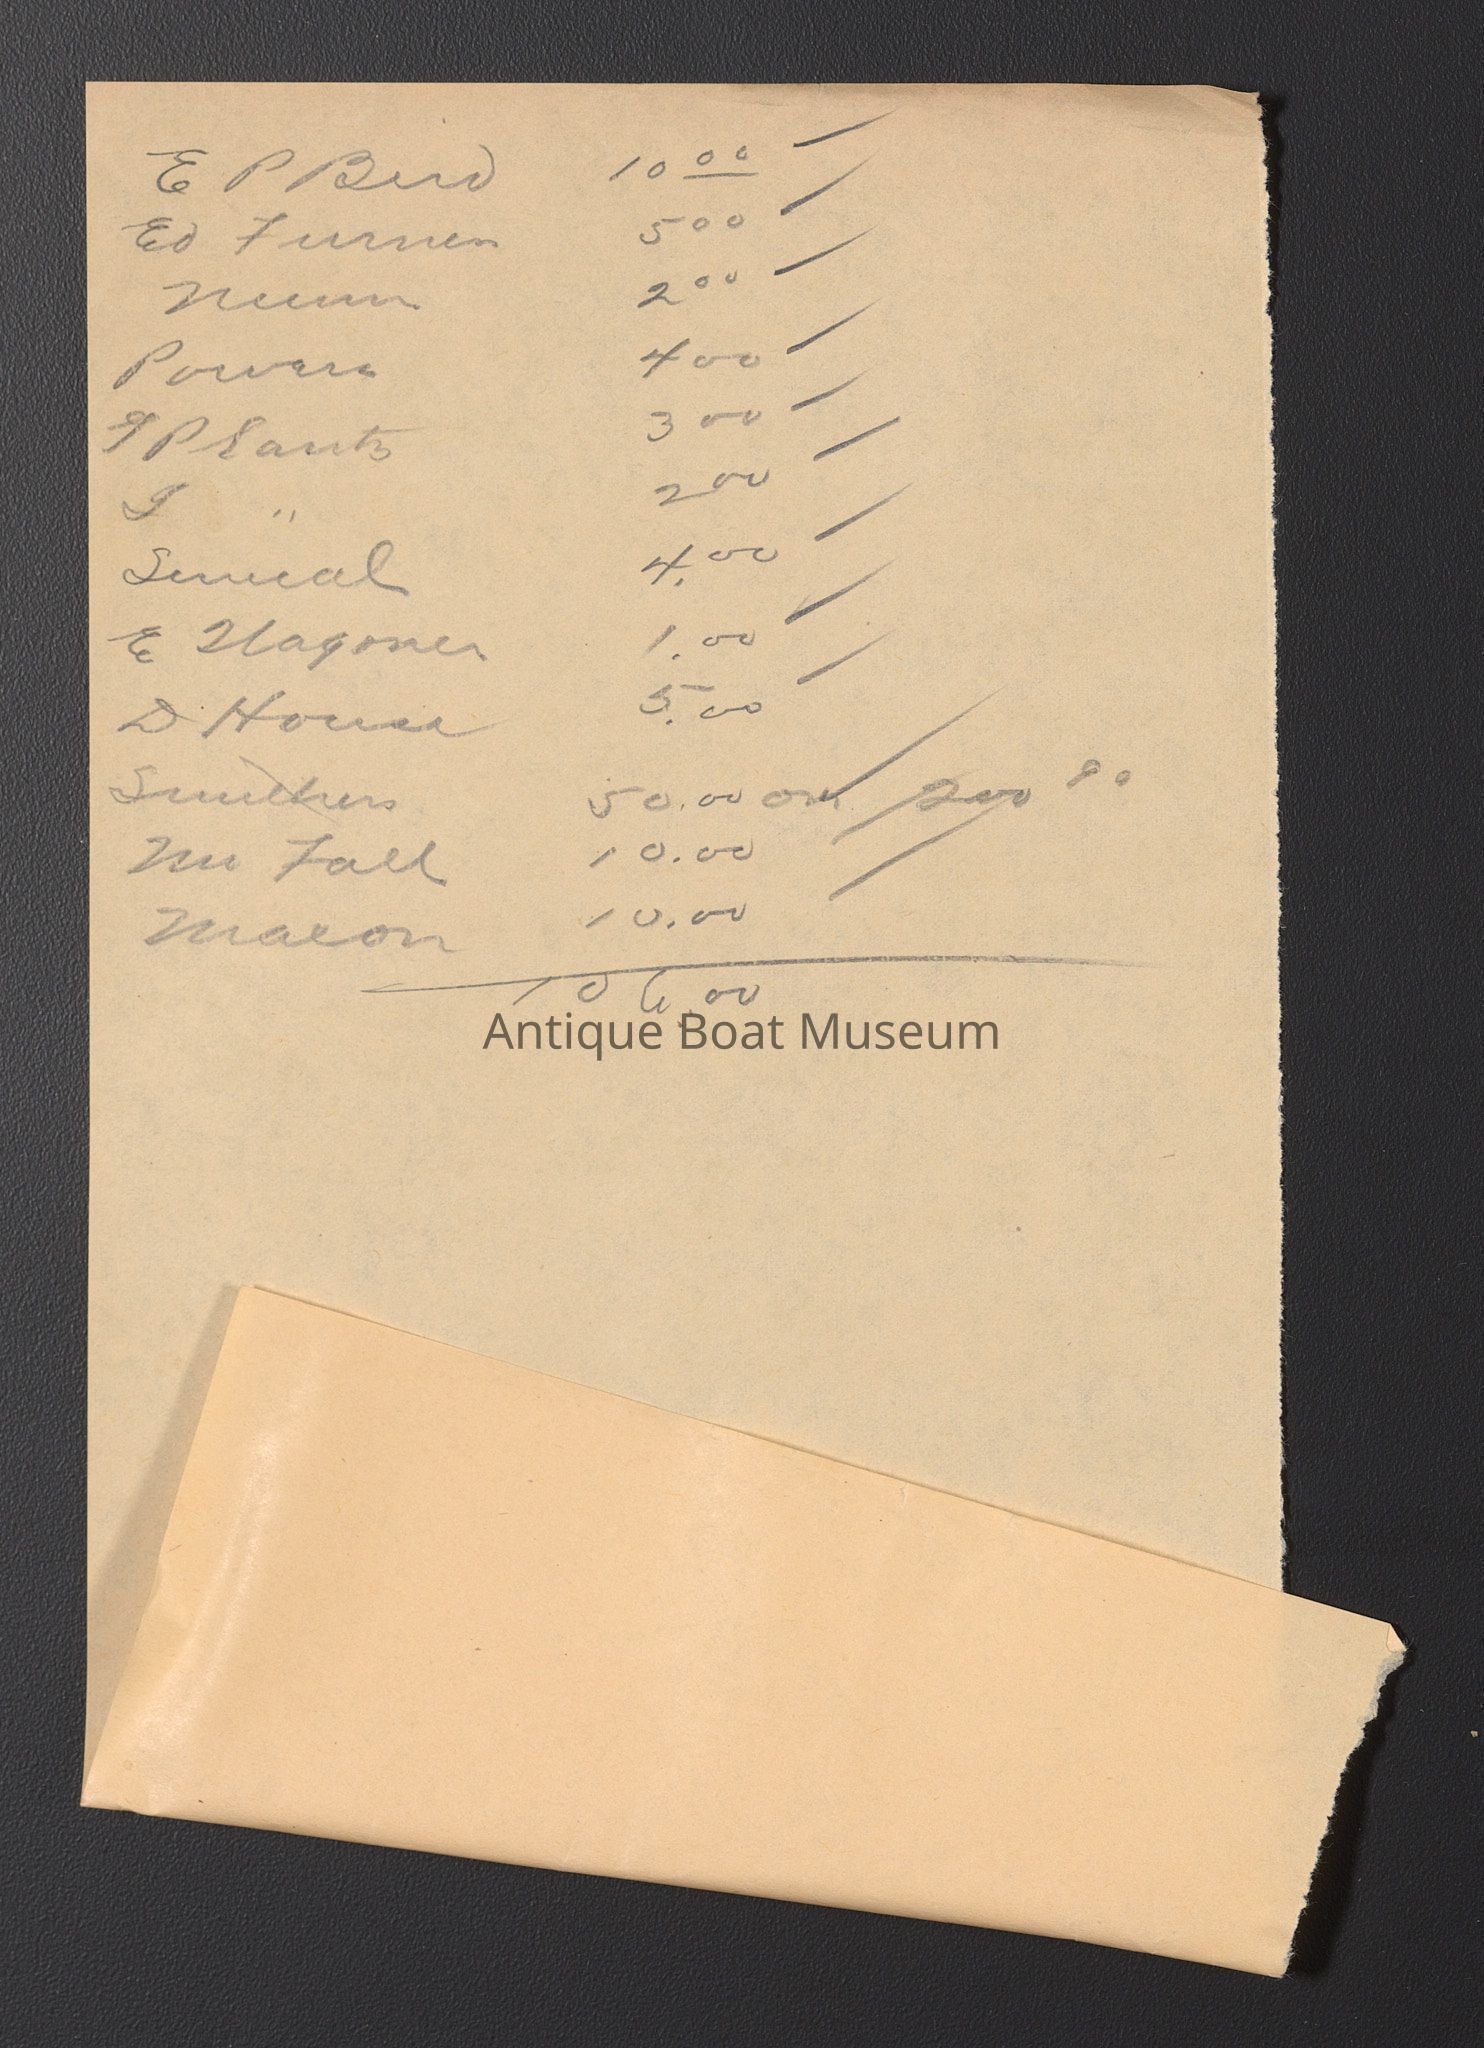 E P Bird 10 00
Ed Turner 5 00
Nunn 2 00
Powers 4 00
G P Lantz 3 00
J " 2 00
4.00
E Wagoner 1.00
D House 5.00
Smithers 50.00 on 200 00
Mc Fall 10.00
Macon 10.00
106.00
Antique Boat Museum